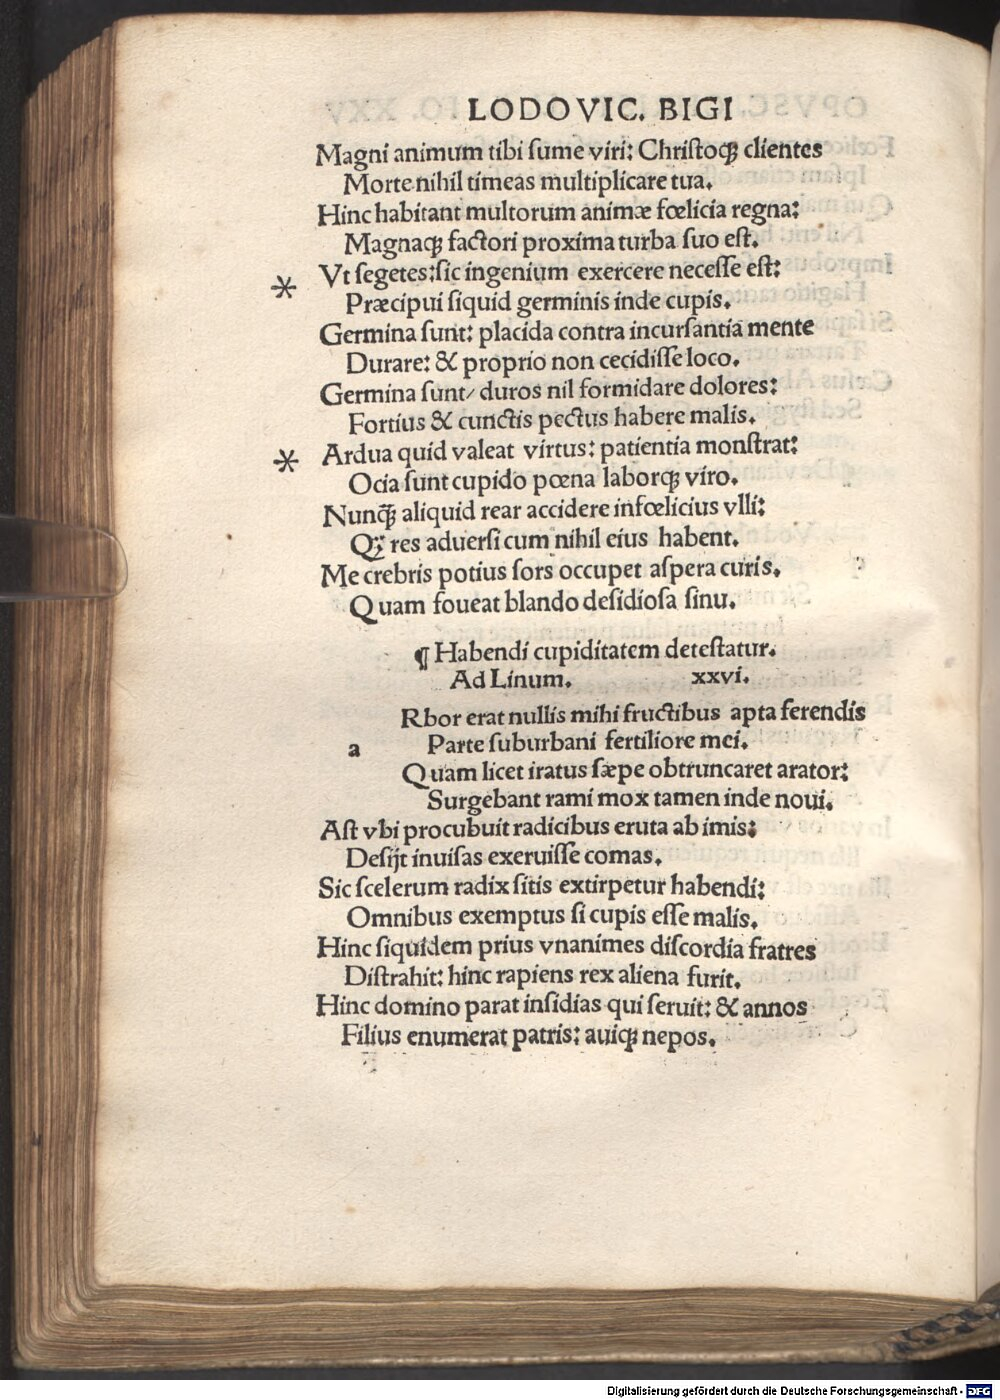 LODOVIC. BIGI
Magni animum tibi sume viri: Christoq; clientes
Morte nihil timeas multiplicare tua.
Hinc habitant multorum animæ fœlicia regna:
Magnaq; factori proxima turba suo est.
* Vt segetes: sic ingenium exercere necesse est:
Præcipui siquid germinis inde cupis.
Germina sunt: placida contra incursantia mente
Durare: & proprio non cecidisse loco.
Germina sunt/ duros nil formidare dolores:
Fortius & cunctis pectus habere malis.
* Ardua quid valeat virtus: patientia monstrat:
Ocia sunt cupido pœna laborq; viro.
Nunq̃ aliquid rear accidere infœlicius vlli:
Q; res aduersi cum nihil eius habent.
Me crebris potius sors occupet aspera curis.
Quam foueat blando desidiosa sinu.
¶ Habendi cupiditatem detestatur.
Ad Linum. xxvi.
a Rbor erat nullis mihi fructibus apta ferendis
Parte suburbani fertiliore mei.
Quam licet iratus sæpe obtruncaret arator:
Surgebant rami mox tamen inde noui.
Ast vbi procubuit radicibus eruta ab imis:
Desijt inuisas exeruisse comas.
Sic scelerum radix sitis extirpetur habendi:
Omnibus exemptus si cupis esse malis.
Hinc siquidem prius vnanimes discordia fratres
Distrahit: hinc rapiens rex aliena furit.
Hinc domino parat insidias qui seruit: & annos
Filius enumerat patris: auiq; nepos.
Digitalisierung gefördert durch die Deutsche Forschungsgemeinschaft - DFG